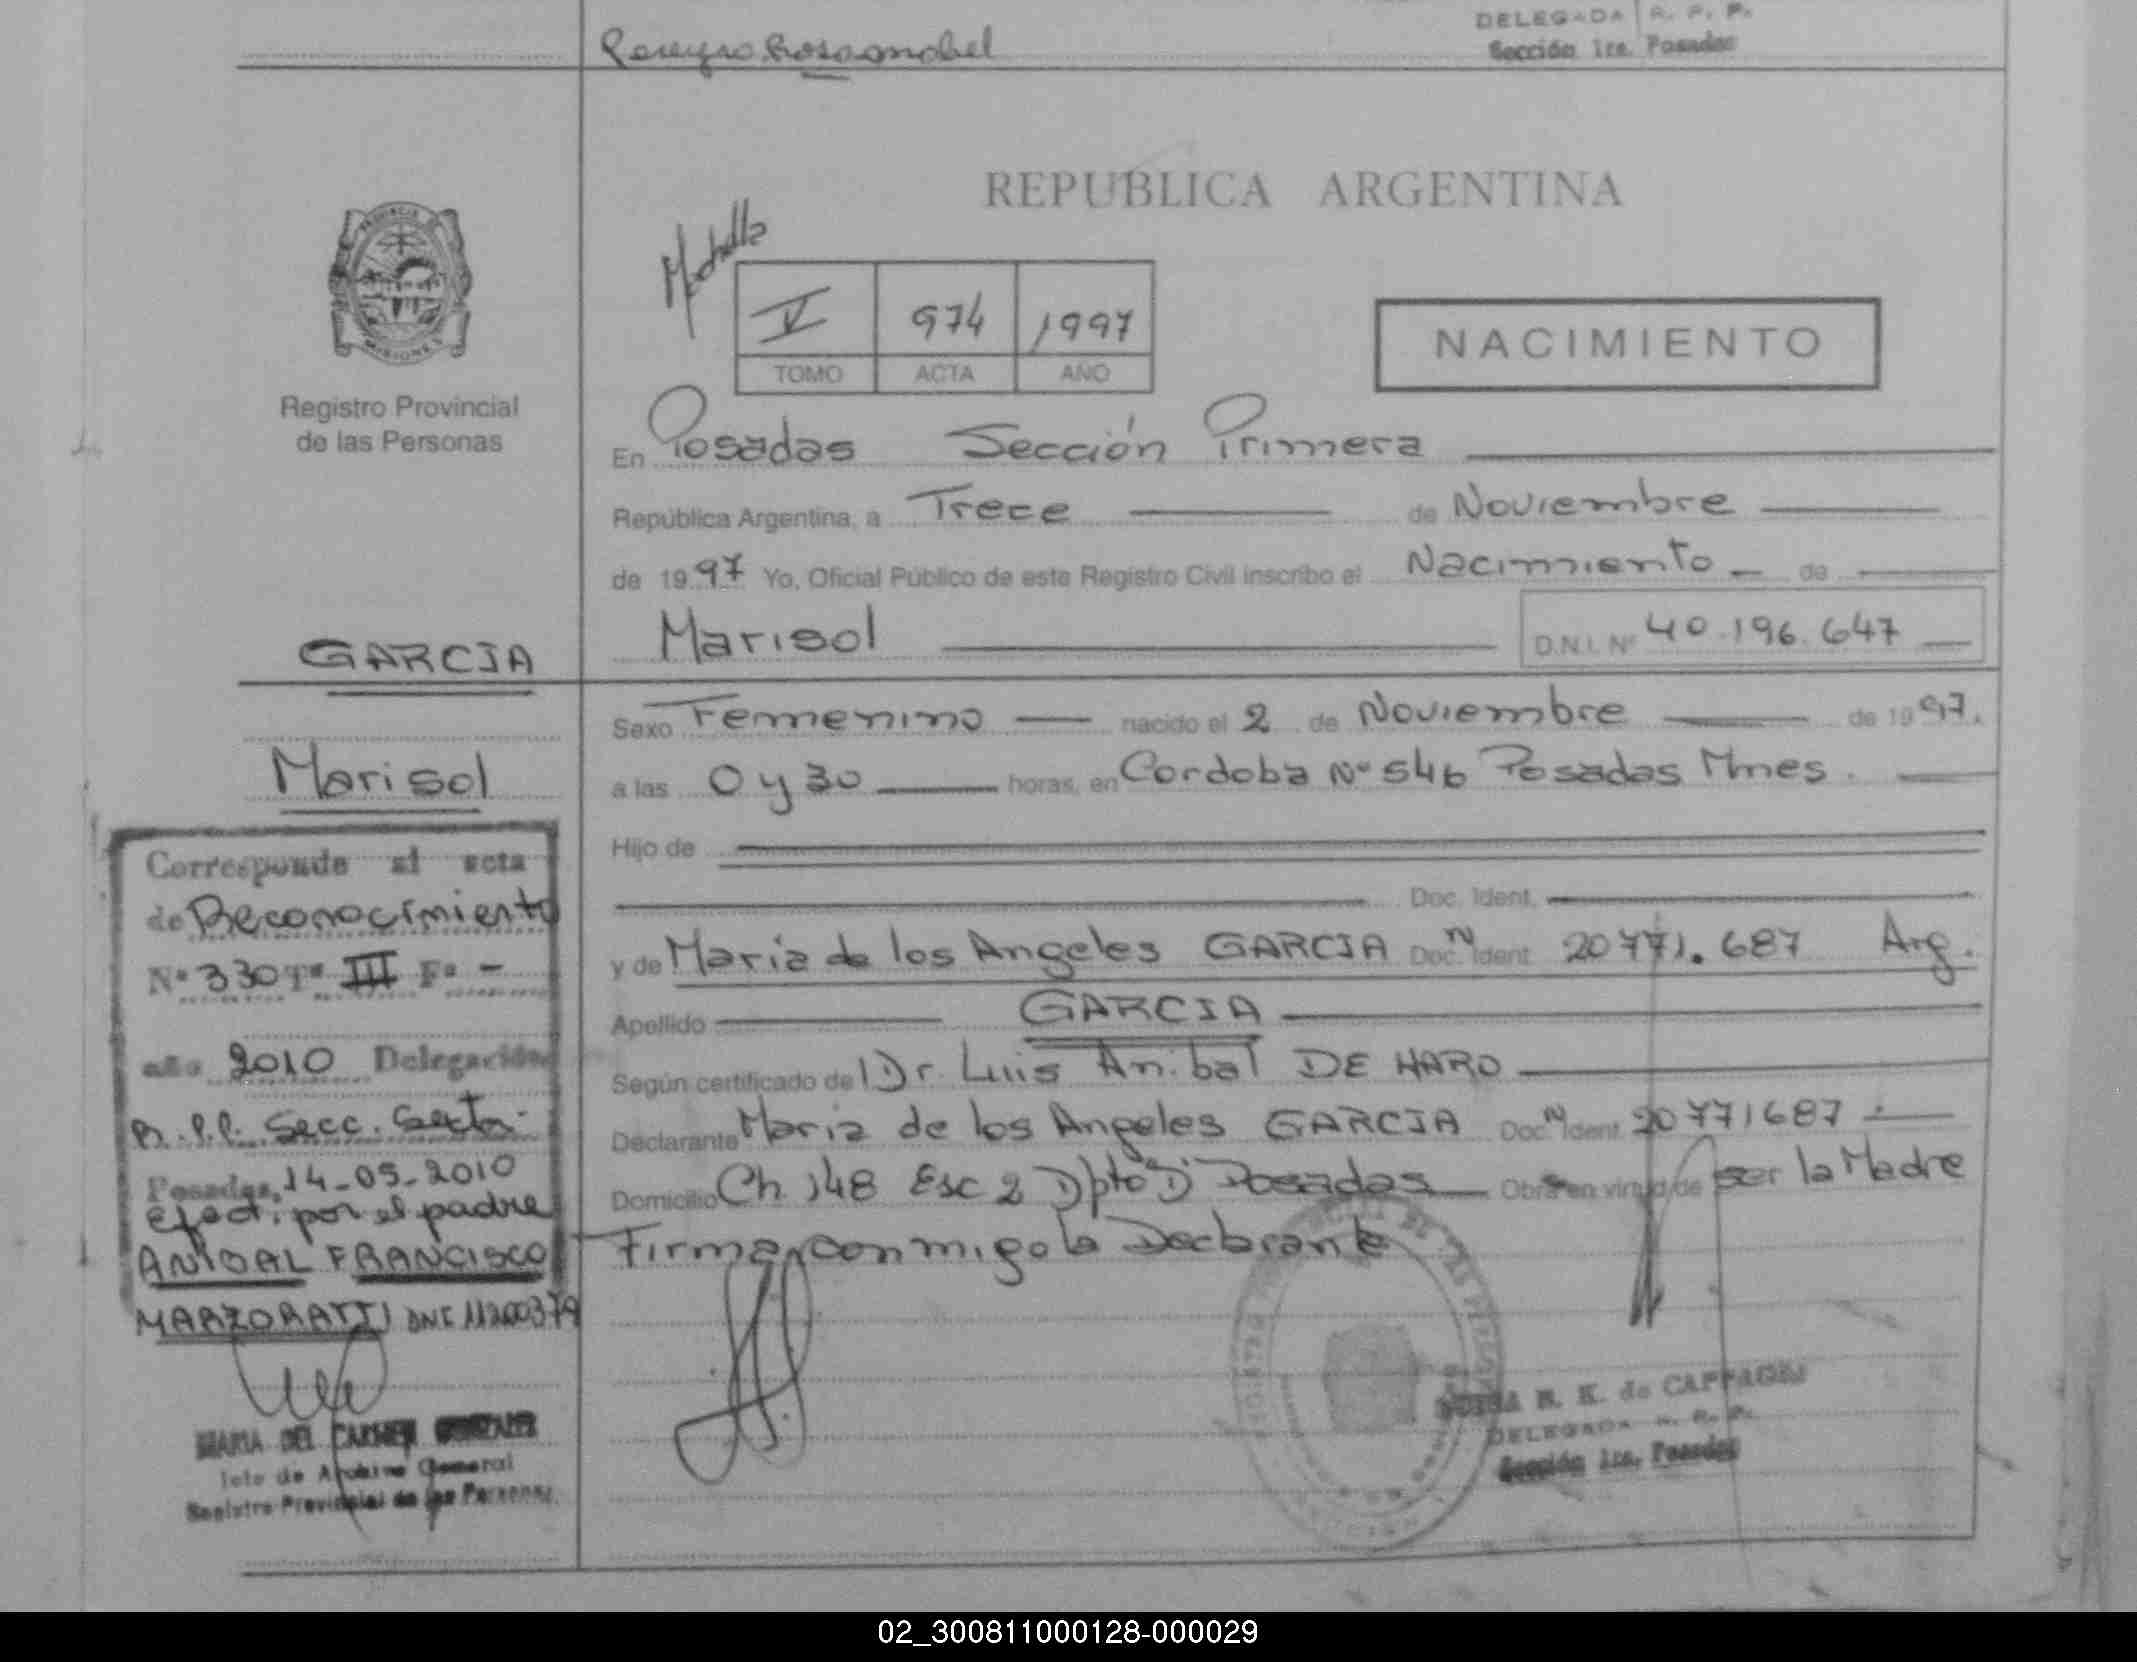 DELEGADA R. P. P.
Sección 1ra. Posadas
REPUBLICA ARGENTINA
PROVINCIA DE
MISIONES
Registro Provincial
de las Personas
V 974 1997
TOMO ACTA AÑO
NACIMIENTO
En Posadas Sección Primera
República Argentina, a Trece de Noviembre
de 1997 Yo, Oficial Público de este Registro Civil inscribo el Nacimiento de
Marisol D.N.I. Nº 40.196.647
GARCIA
Marisol
Sexo Femenino nacido el 2 de Noviembre de 1997.
a las 0 y 30 horas, en Cordoba Nº 546 Posadas Mnes.
Hijo de
Doc. Ident.
y de Maria de los Angeles GARCIA Doc. N Ident 20771.687 Arg.
Apellido GARCIA
Según certificado de Dr. Luis Anibal DE HARO
Declarante Maria de los Angeles GARCIA Doc. N Ident 20771687
Domicilio Ch 148 Esc 2 Dpto "D" Posadas Obra en virtud de ser la Madre
Firma conmigo la Declarante
Corresponde al acta
de Reconocimiento
Nº 330 Tº III Fº -
año 2010 Delegación
R.P.P. Secc. Sexta
Posadas, 14-05-2010
efect. por el padre
ANIBAL FRANCISCO
MARZORATTI DNI 11200379
MARIA DEL CARMEN
Jefe de Archivo General
Registro Provincial de las Personas
R. K. de
DELEGADA R. P. P.
Sección 1ra. Posadas
02_300811000128-000029